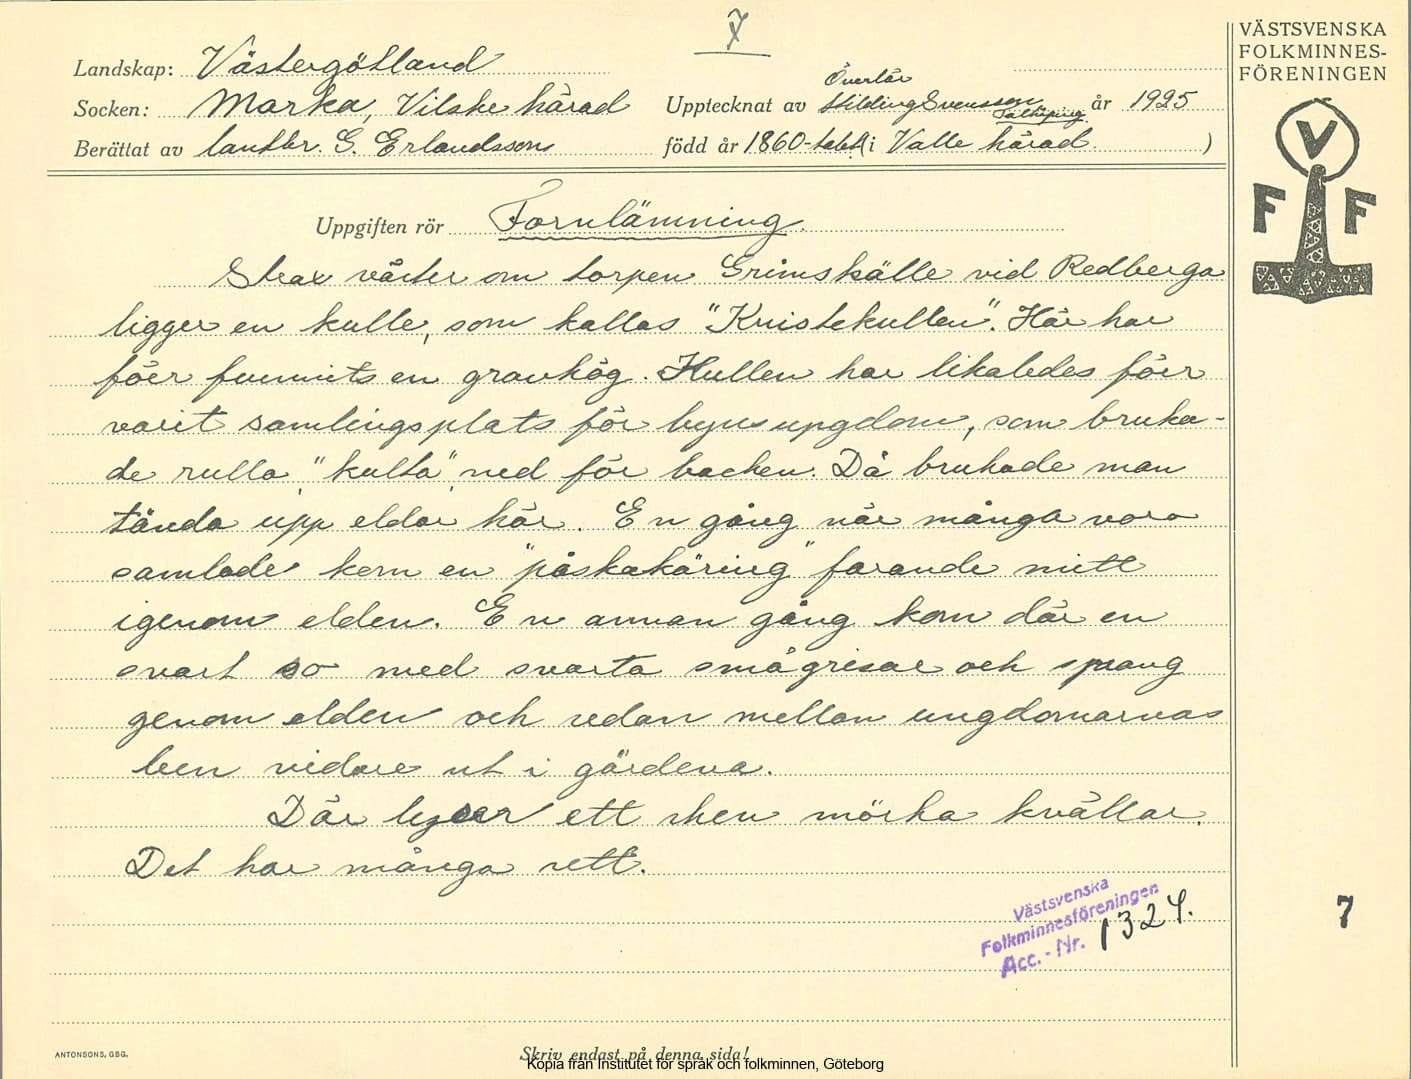 7
VÄSTSVENSKA
FOLKMINNES-
FÖRENINGEN
V
F F
Landskap: Västergötland
Socken: Marka, Vilske härad Upptecknat av Överlär Hilding Svensson Falköping år 1925
Berättat av lantbr. G. Erlandsson född år 1860-talet (i Valle härad.)
Uppgiften rör Fornlämning.
Strax väster om torpen Grimskälle vid Redberga
ligger en kulle, som kallas "Knistekullen". Här har
förr funnits en gravhög. Kullen har likaledes förr
varit samlingsplats för byns ungdom, som bruka-
de rulla "kulta" ned för backen. Då brukade man
tända upp eldar här. En gång när många voro
samlade kom en "påskakäring" farande mitt
igenom elden. En annan gång kom där en
svart so med svarta smågrisar och sprang
genom elden och sedan mellan ungdomarnas
ben vidare ut i gärdena.
Där lyser ett sken mörka kvällar.
Det har många sett.
Västsvenska
Folkminnesföreningen
Acc.-Nr. 1324.
7
ANTONSONS, GBG.
Skriv endast på denna sida!
Kopia från Institutet för språk och folkminnen, Göteborg